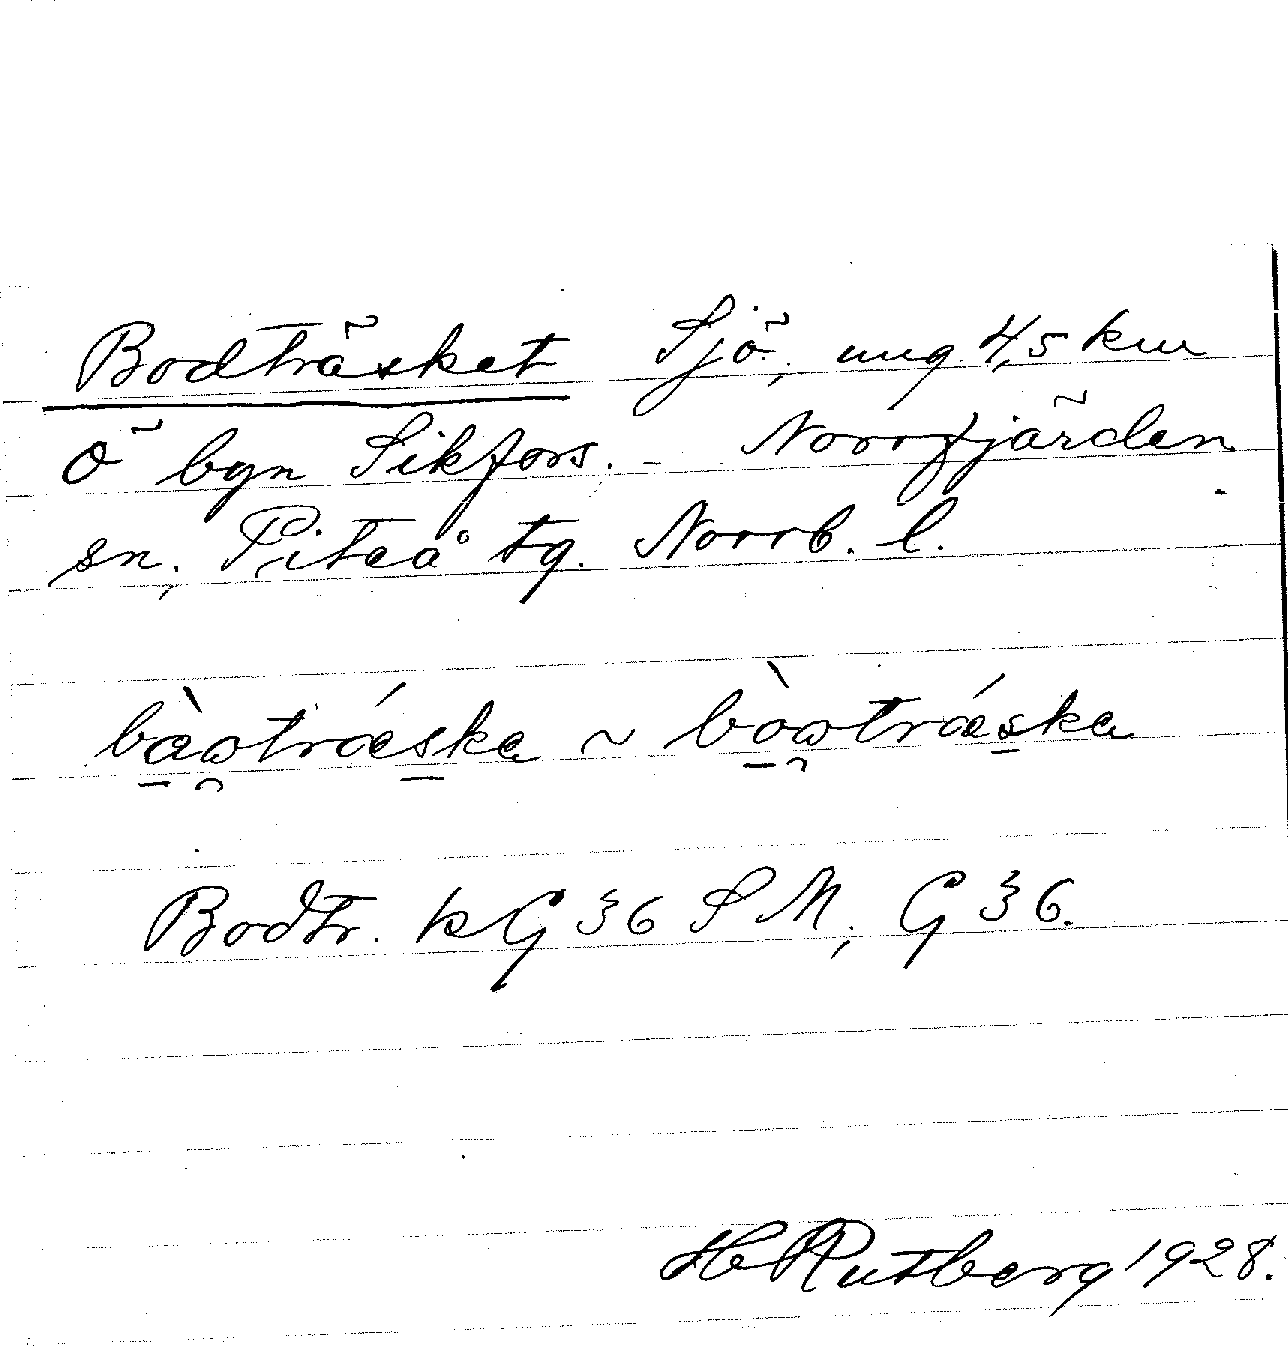 Bodträsket Sjö, ung 4,5 km
Ö byn Sikfors. – Norrfjärden
sn, Piteå tg. Norrb. l.
bàωtrǽska ~ bòωtrǽska
Bodtr. kG 36 SM, G 36.
H Rutberg 1928.